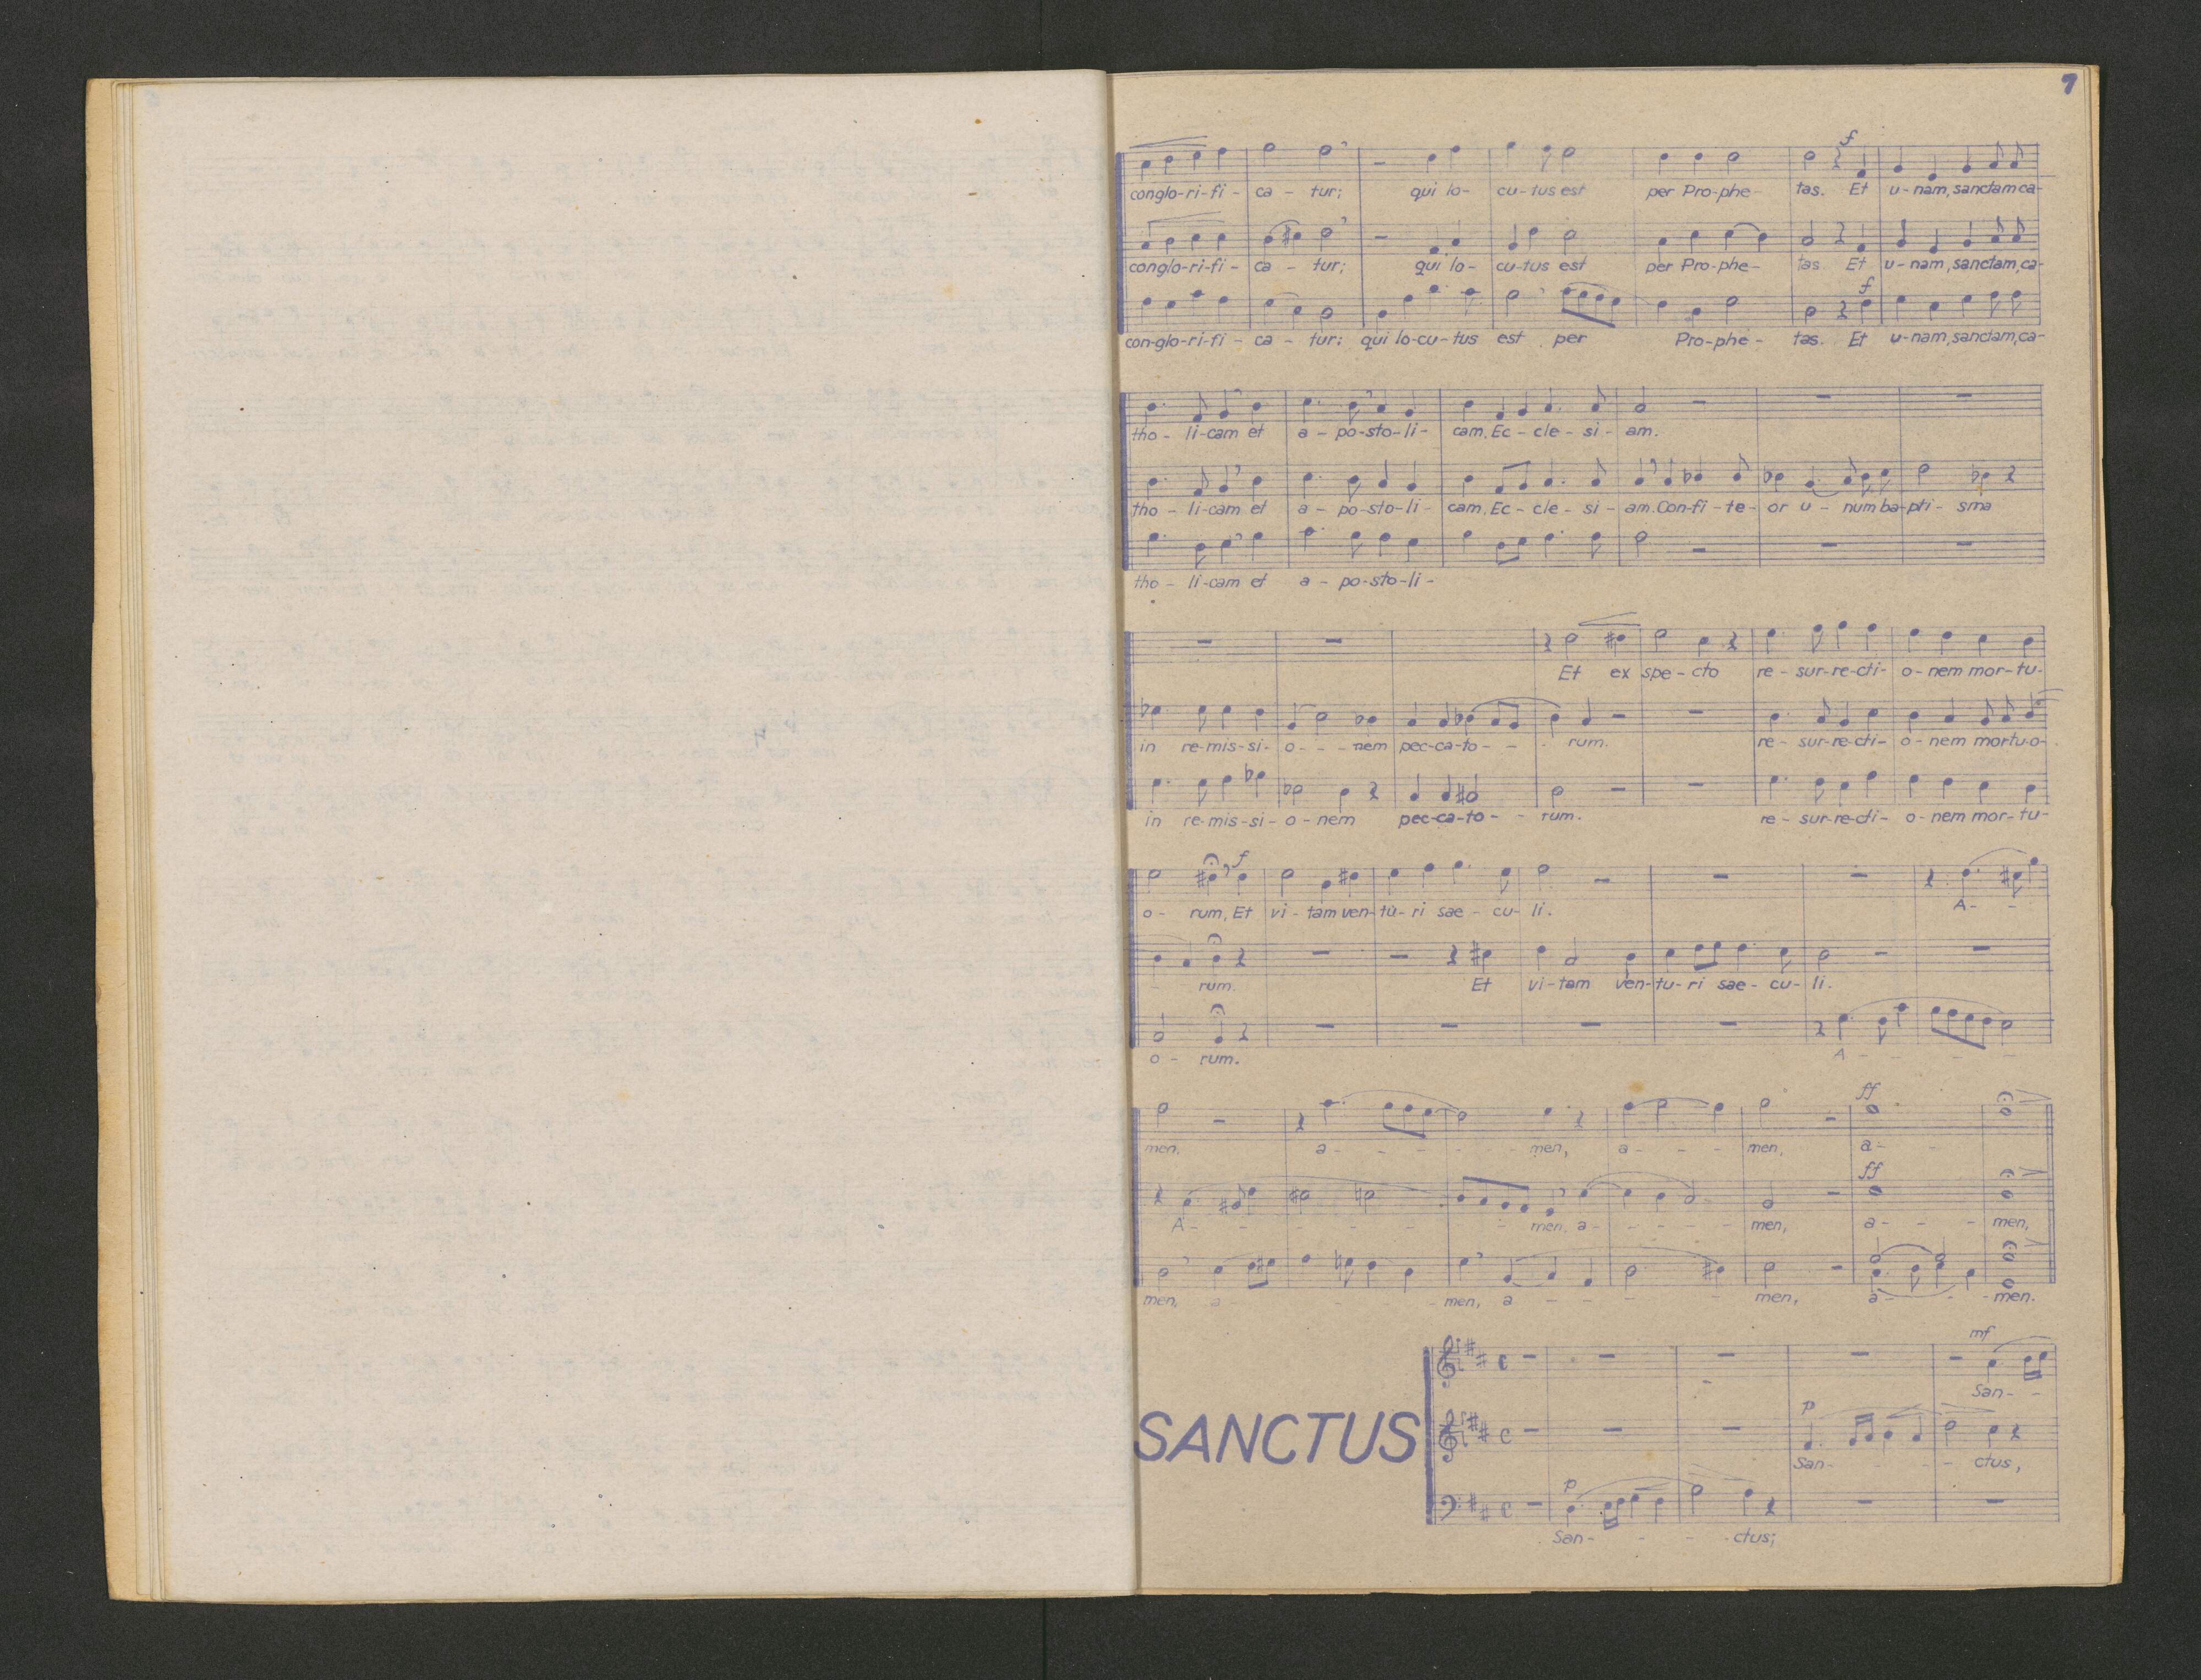 7
f
conglo-ri-fi- ca - tur; qui lo- cu-tus est per Pro-phe- tas. Et u-nam, sanctam ca-
conglo-ri-fi- ca - tur; qui lo- cu-tus est per Pro-phe- tas Et u-nam, sanctam, ca-
f
con-glo-ri-fi- ca - tur: qui lo-cu-tus est per Pro-phe- tas. Et u-nam, sanctam, ca-
tho- li-cam et a-po-sto-li- cam, Ec-cle-si- am.
tho- li-cam et a-po-sto-li- cam, Ec-cle-si- am. Con-fi-te- or u-num ba-pti-sma
tho- li-cam et a-po-sto-li-
Et ex spe-cto re-sur-re-cti- o-nem mor-tu-
in re-mis-si- o - - nem pec-ca-to - - - rum. re-sur-re-cti- o-nem mortu-o-
in re-mis-si- o-nem pec-ca-to - - rum. re-sur-re-cti- o-nem mor-tu-
f
o- rum, Et vi-tam ven-tu-ri sae-cu- li. A- -
- rum. Et vi-tam ven-tu-ri sae-cu- li.
o- rum. A - - - -
ff
men. a - - - - - men, a - - - men, a - -
ff
A - - - - - - - men, a - - - - men, a - - - men,
men, a - - - - men, a - - - - men, a - - - men.
SANCTUS
mf
San- -
p
San- - - - ctus,
p
San- - - - ctus;